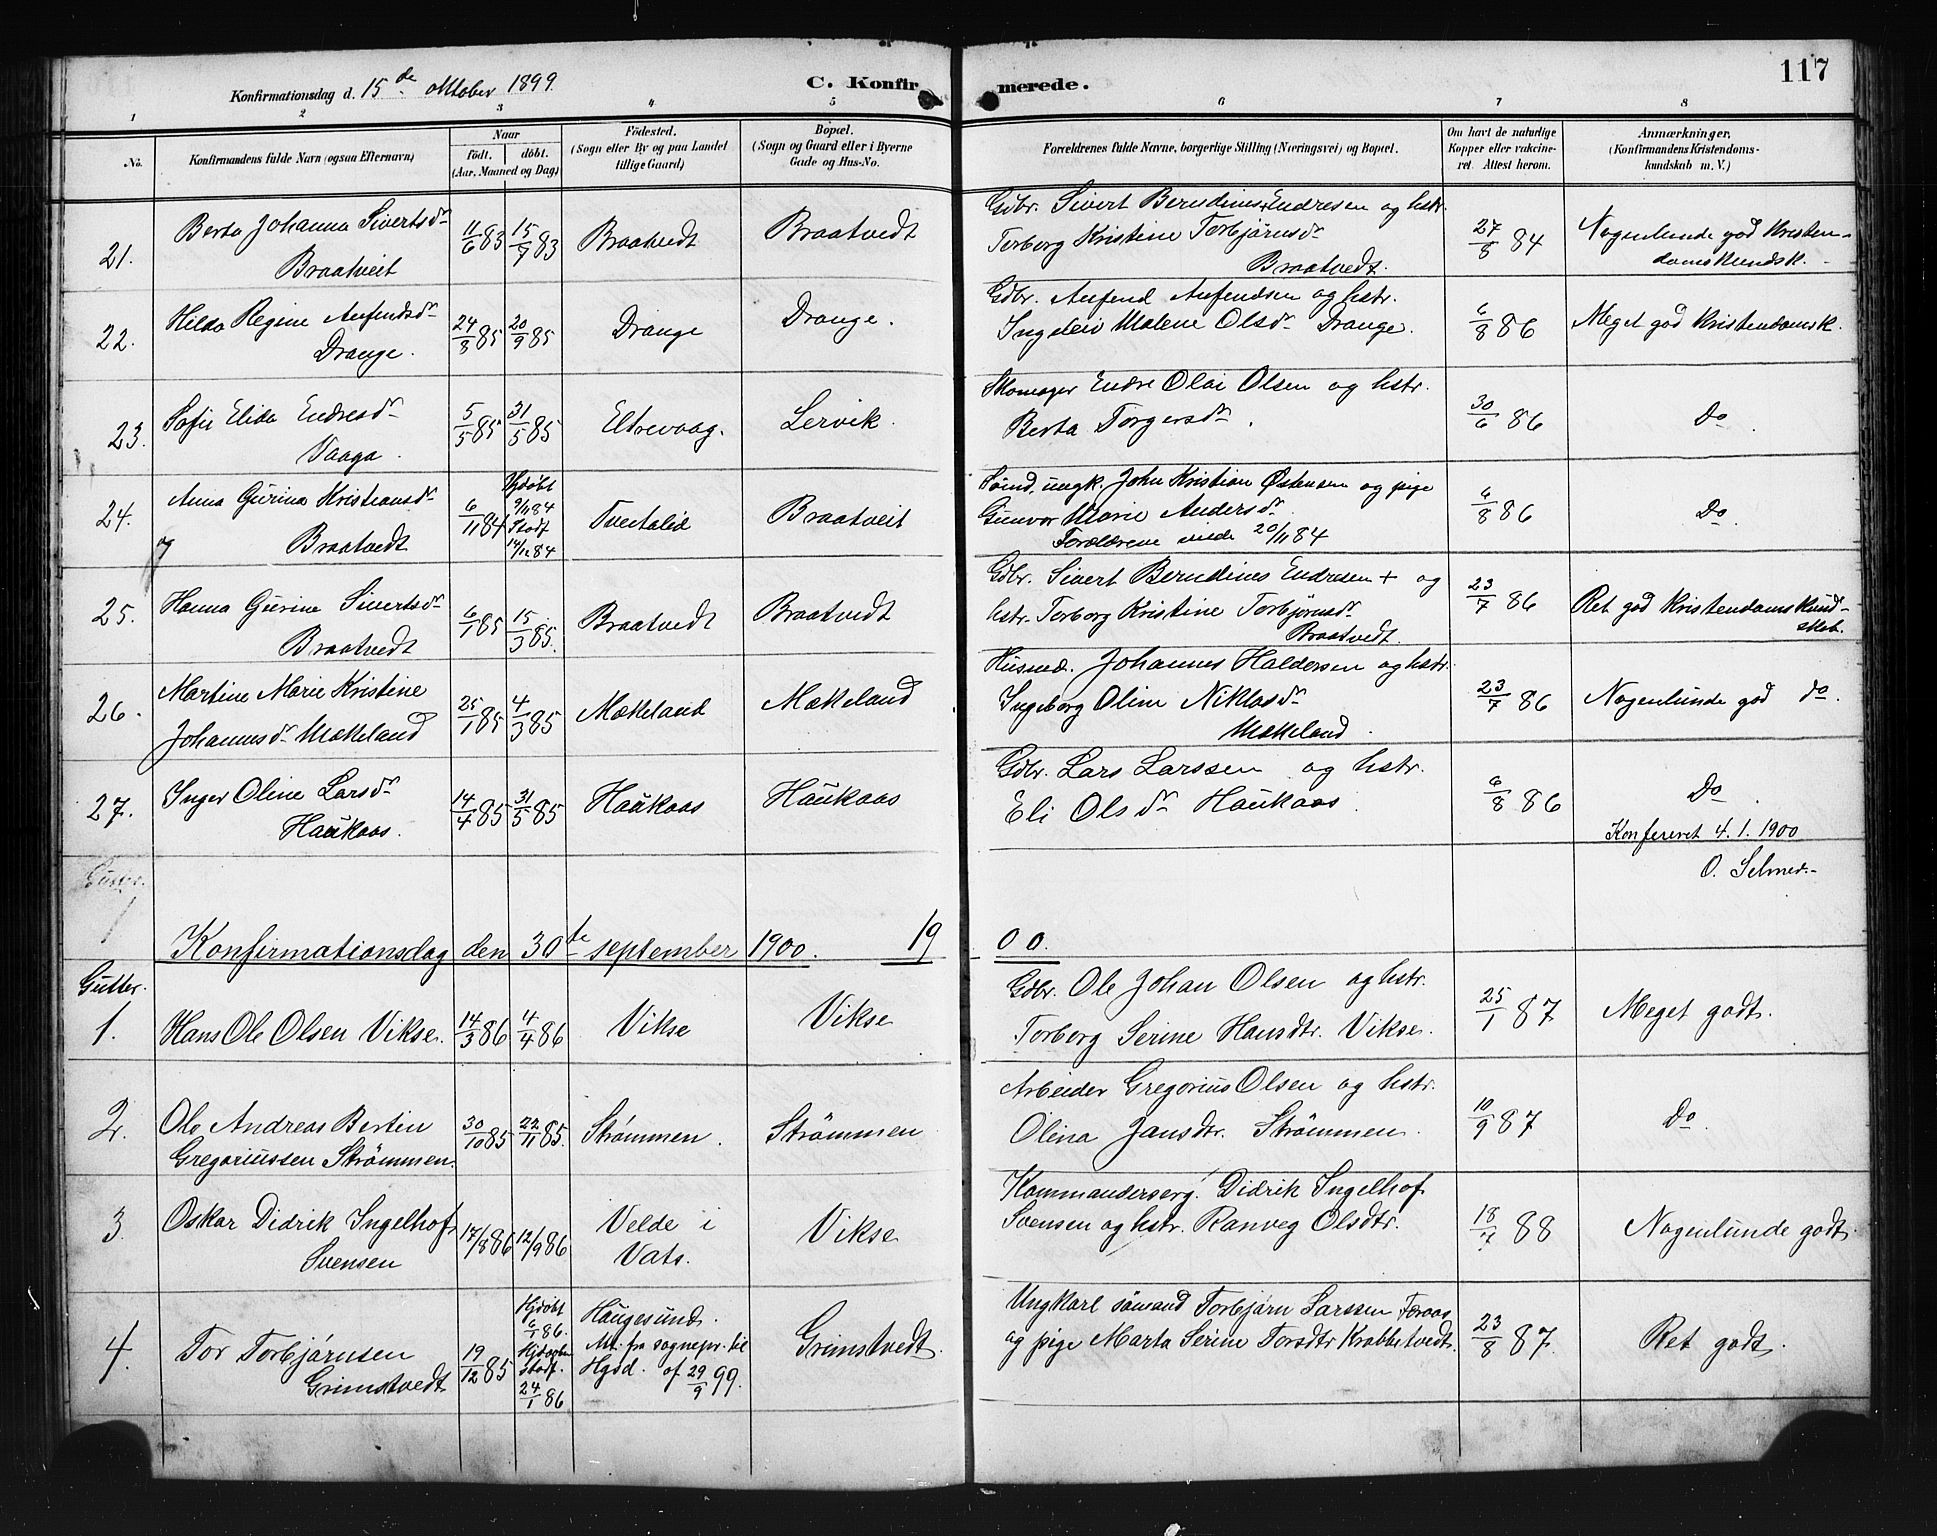 117
Konfirmationsdag d. 15de oktober 1899.
C. Konfirmerede.
1 2 3 4 5 6 7 8
No.
Konfirmandens fulde Navn (ogsaa Efternavn)
Naar
födt. döbt.
(Aar, Maaned og Dag)
Födested.
(Sogn eller By og paa Landet
tillige Gaard)
Bopæl.
(Sogn og Gaard eller i Byerne
Gade og Hus-No.
Forældrenes fulde Navne, borgerlige Stilling (Næringsvei) og Bopæl.
Om havt de naturlige
Kopper eller vakcine-
ret. Attest herom.
Anmærkninger,
(Konfirmandens Kristendoms-
kundskab m. V.)
21. Berta Johanna Sivertsdr
Braatveit
11/6 83 15/7 83 Braatvedt Braatvedt
Gdbr. Sivert Berudines Endresen og hstr.
Torborg Kristine Torbjørnsdr
Braatvedt.
27/8 84 Nogenlunde god Kristen-
domskundsk.
22. Hilda Regine Anfindsdr
Drange.
24/8 85 20/9 85 Drange Drange.
Gdbr. Anfend Anfendsen og hstr.
Ingeleiv Malene Olsdr Drange.
6/8 86 Meget god Kristendomsk.
23. Sofie Elida Endresdr
Vaaga.
5/5 85 31/5 85 Eltrevaag. Lervik.
Skomager Endre Olai Olsen og hstr.
Berta Torgersdr.
30/6 86 Do
24. Anna Gurina Kristiansdr
Braatvedt
6/11 84 Hjdøbt
9/11 84
Stadf
14/12 84
Tveitalid Braatveit
Sömd, ungk. John Kristian Østensen og pige
Gunvor Marie Andersdr
Forældrene viede 20/11 84
6/8 86 Do
25. Hanna Gurine Sivertsdr
Braatvedt
6/1 85 15/3 85. Braatvedt Braatvedt
Gdbr. Sivert Berudines Endresen + og
hstr. Torborg Kristine Torbjörnsdr
Braatvedt.
23/7 86 Ret god Kristendomskund-
skab.
26. Martine Marie Kristine
Johannesdr Mækeland
25/1 85 4/3 85 Mækeland Mækeland
Husmd. Johannes Haldorsen og hstr.
Ingeborg Oline Niklasdr
Mækeland.
23/7 86 Nogenlunde god do.
27. Inger Oline Larsdr
Haukaas.
14/4 85 31/5 85 Haukaas Haukaas
Gdbr. Lars Larssen og hstr.
Eli Olsdr Haukaas.
6/8 86 Do.
Konfereret 4.1.1900
O. Selmer.
Gutter.
1
Konfirmationsdag den 30te september 1900. 1900.
Gutter.
1. Hans Ole Olsen Vikse.
14/3 86 4/4 86 Vikse Vikse
Gdbr. Ole Johan Olsen og hstr.
Torborg Serine Hansdtr. Vikse.
25/1 87 Meget godt.
2. Ole Andreas Bertin
Gregoriussen Strömmen.
30/10 85 22/11 85. Strømmen. Strömmen
Arbeider Gregorius Olsen og hstr.
Olina Jansdtr. Strömmen.
10/9 87 Do.
3. Oskar Didrik Ingelhof
Svensen
17/8 86 12/9 86 Velde i
Vats. Vikse
Kommandersерg. Didrik Ingelhof
Svensen og hstr. Ranveg Olsdtr.
18/7 88 Nogenlunde godt.
4. Tor Torbjörnsen
Grimstvedt
19/12 85 Hjdöbt
6/1 86.
stadf.
24/1 86
Haugesund.
Att. fra sognepr. til
Hgsd. af 29/9 99.
Grimstvedt.
Ungkarl sömand Torbjørn Larssen Foraas
og pige Marta Serine Torsdtr Krabbetvedt.
23/8 87. Ret godt.